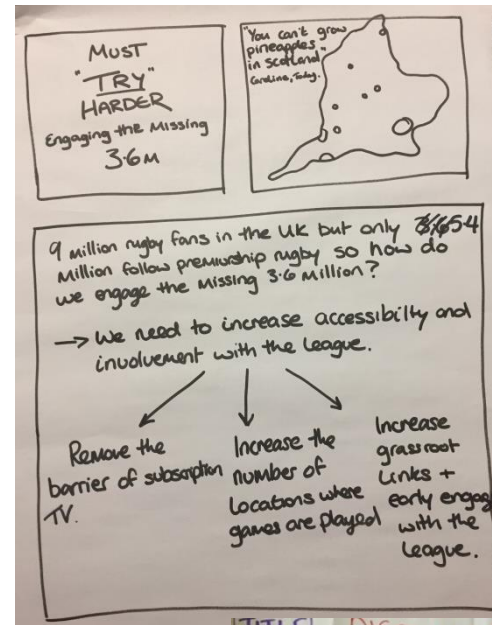 MUST
"TRY"
HARDER
Engaging the Missing
3.6M
"You can't grow
pineapples
in scotland"
Caroline, Today.
9 million rugby fans in the UK but only 54
Million follow premiership rugby so how do
we engage the missing 3.6 Million?
→ We need to increase accessibilty and
involvement with the league.
Remove the
barrier of subscription
TV.
Increase the
number of
Locations where
games are played
Increase
grassroot
Links +
early engag
with the
league.